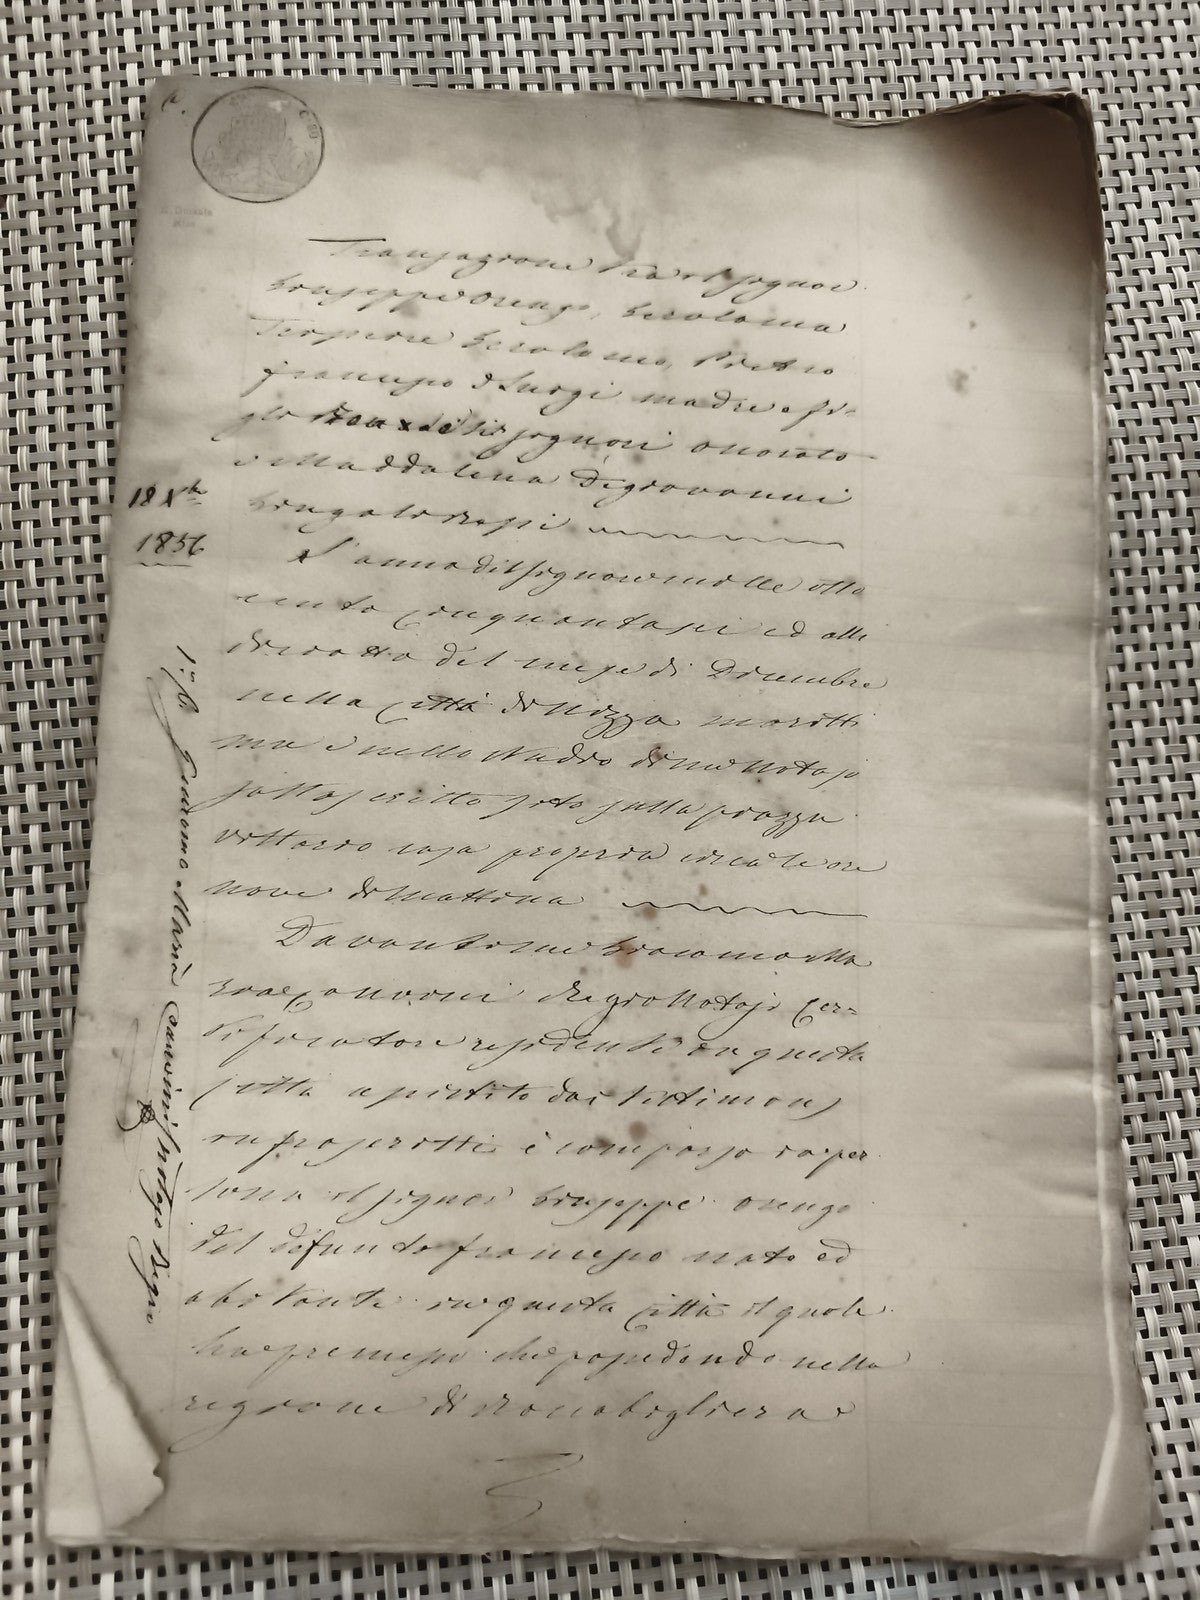 Transazione tra il signor
Giuseppe Orengo, Gerolama
Gerolamo, Pietro
Francesco e Luigi madre e fi-
gli signori Onorato
e Maddalena Degiovanni
18 Xbre
1856
L'anno del signore mille otto
cento cinquantasei ed alli
dieciotto del mese di Dicembre
nella città di Nizza maritti
ma e nello studio di me Notajo
sottoscritto sito sulla piazza
Vittorio casa propria circa le ore
nove di mattina
Davanti me Giacomo Ma
ria regio Notajo Cer=
tificatore residente in questa
città assistito dai testimonj
infrascritti è comparso in per
sona il signor Giuseppe Orengo
del defunto Francesco nato ed
abitante in questa città il quale
ha premesso che possedendo nella
regione di
Giacomo Maria Notajo Regio